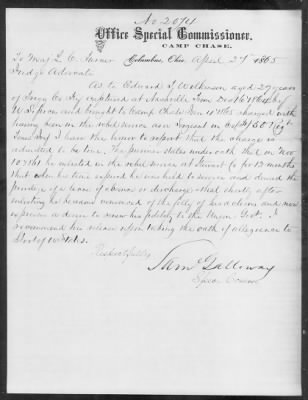 No. 20741
Office Special Commissioner,
CAMP CHASE.
To Maj. L. C. Turner Columbus, Ohio April 27th 1865
Judge Advocate
As to Edward T. Wilkinson aged 29 years
of Co captured at Nashville Tenn Dec 16 1864 by
U.S. forces and brought to Camp Chase Jan 1865 charged with
having been in the rebel service as a Sergeant in
Tenn Inf. I have the honor to report that the charge is
admitted to be true. The prisoner states under oath that on Nov
1861 he enlisted in the rebel service at Stewart Co for 12 months
that when his time expired he was held to service and denied the
privilege of a leave of absence or discharge—that shortly after
enlisting he became convinced of the folly of his actions and now
expresses a desire to renew his fidelity to the Union Govt. I
recommend his release upon taking the oath of allegiance to
the United States.
Respectfully
Sam Galloway
Special Comm